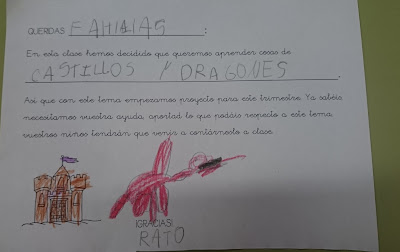 QUERIDAS FAMILIAS:
En esta clase hemos decidido que queremos aprender cosas de
CASTILLOS Y DRAGONES.
Así que con este tema empezamos proyecto para este trimestre. Ya sabéis
necesitamos vuestra ayuda, aportad lo que podáis respecto a este tema,
vuestros niños tendrán que venir a contárnoslo a clase.
¡GRACIAS!
RATO